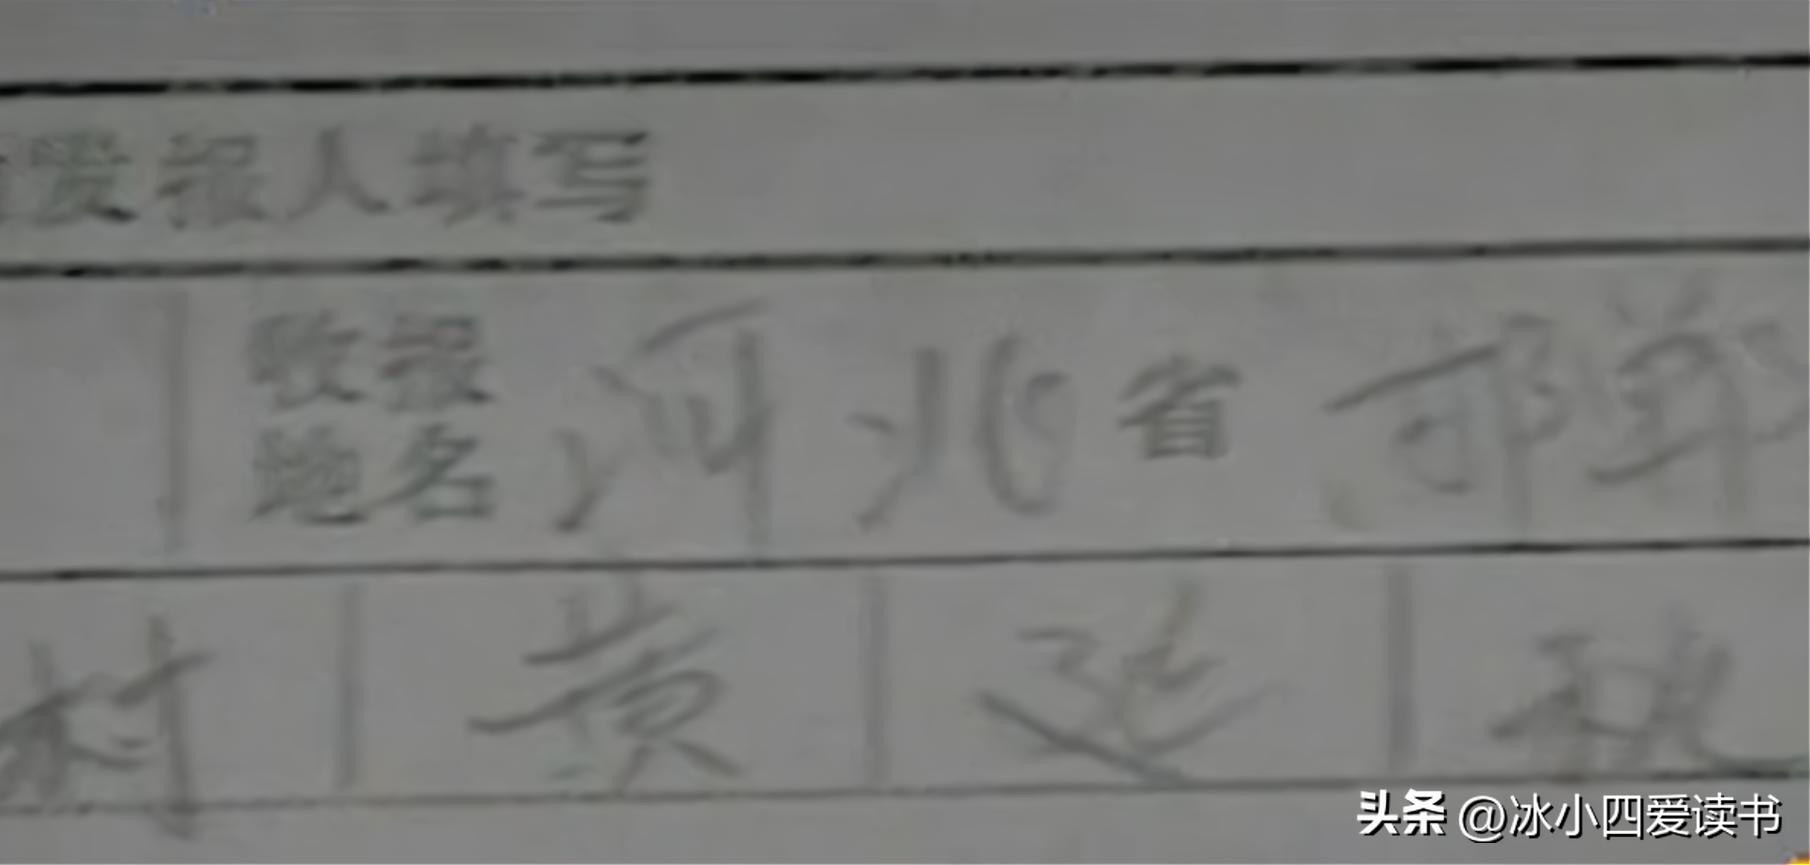 发报人填写
收报
地名 河北省邯郸
村 黄 延 秋
头条 @冰小四爱读书